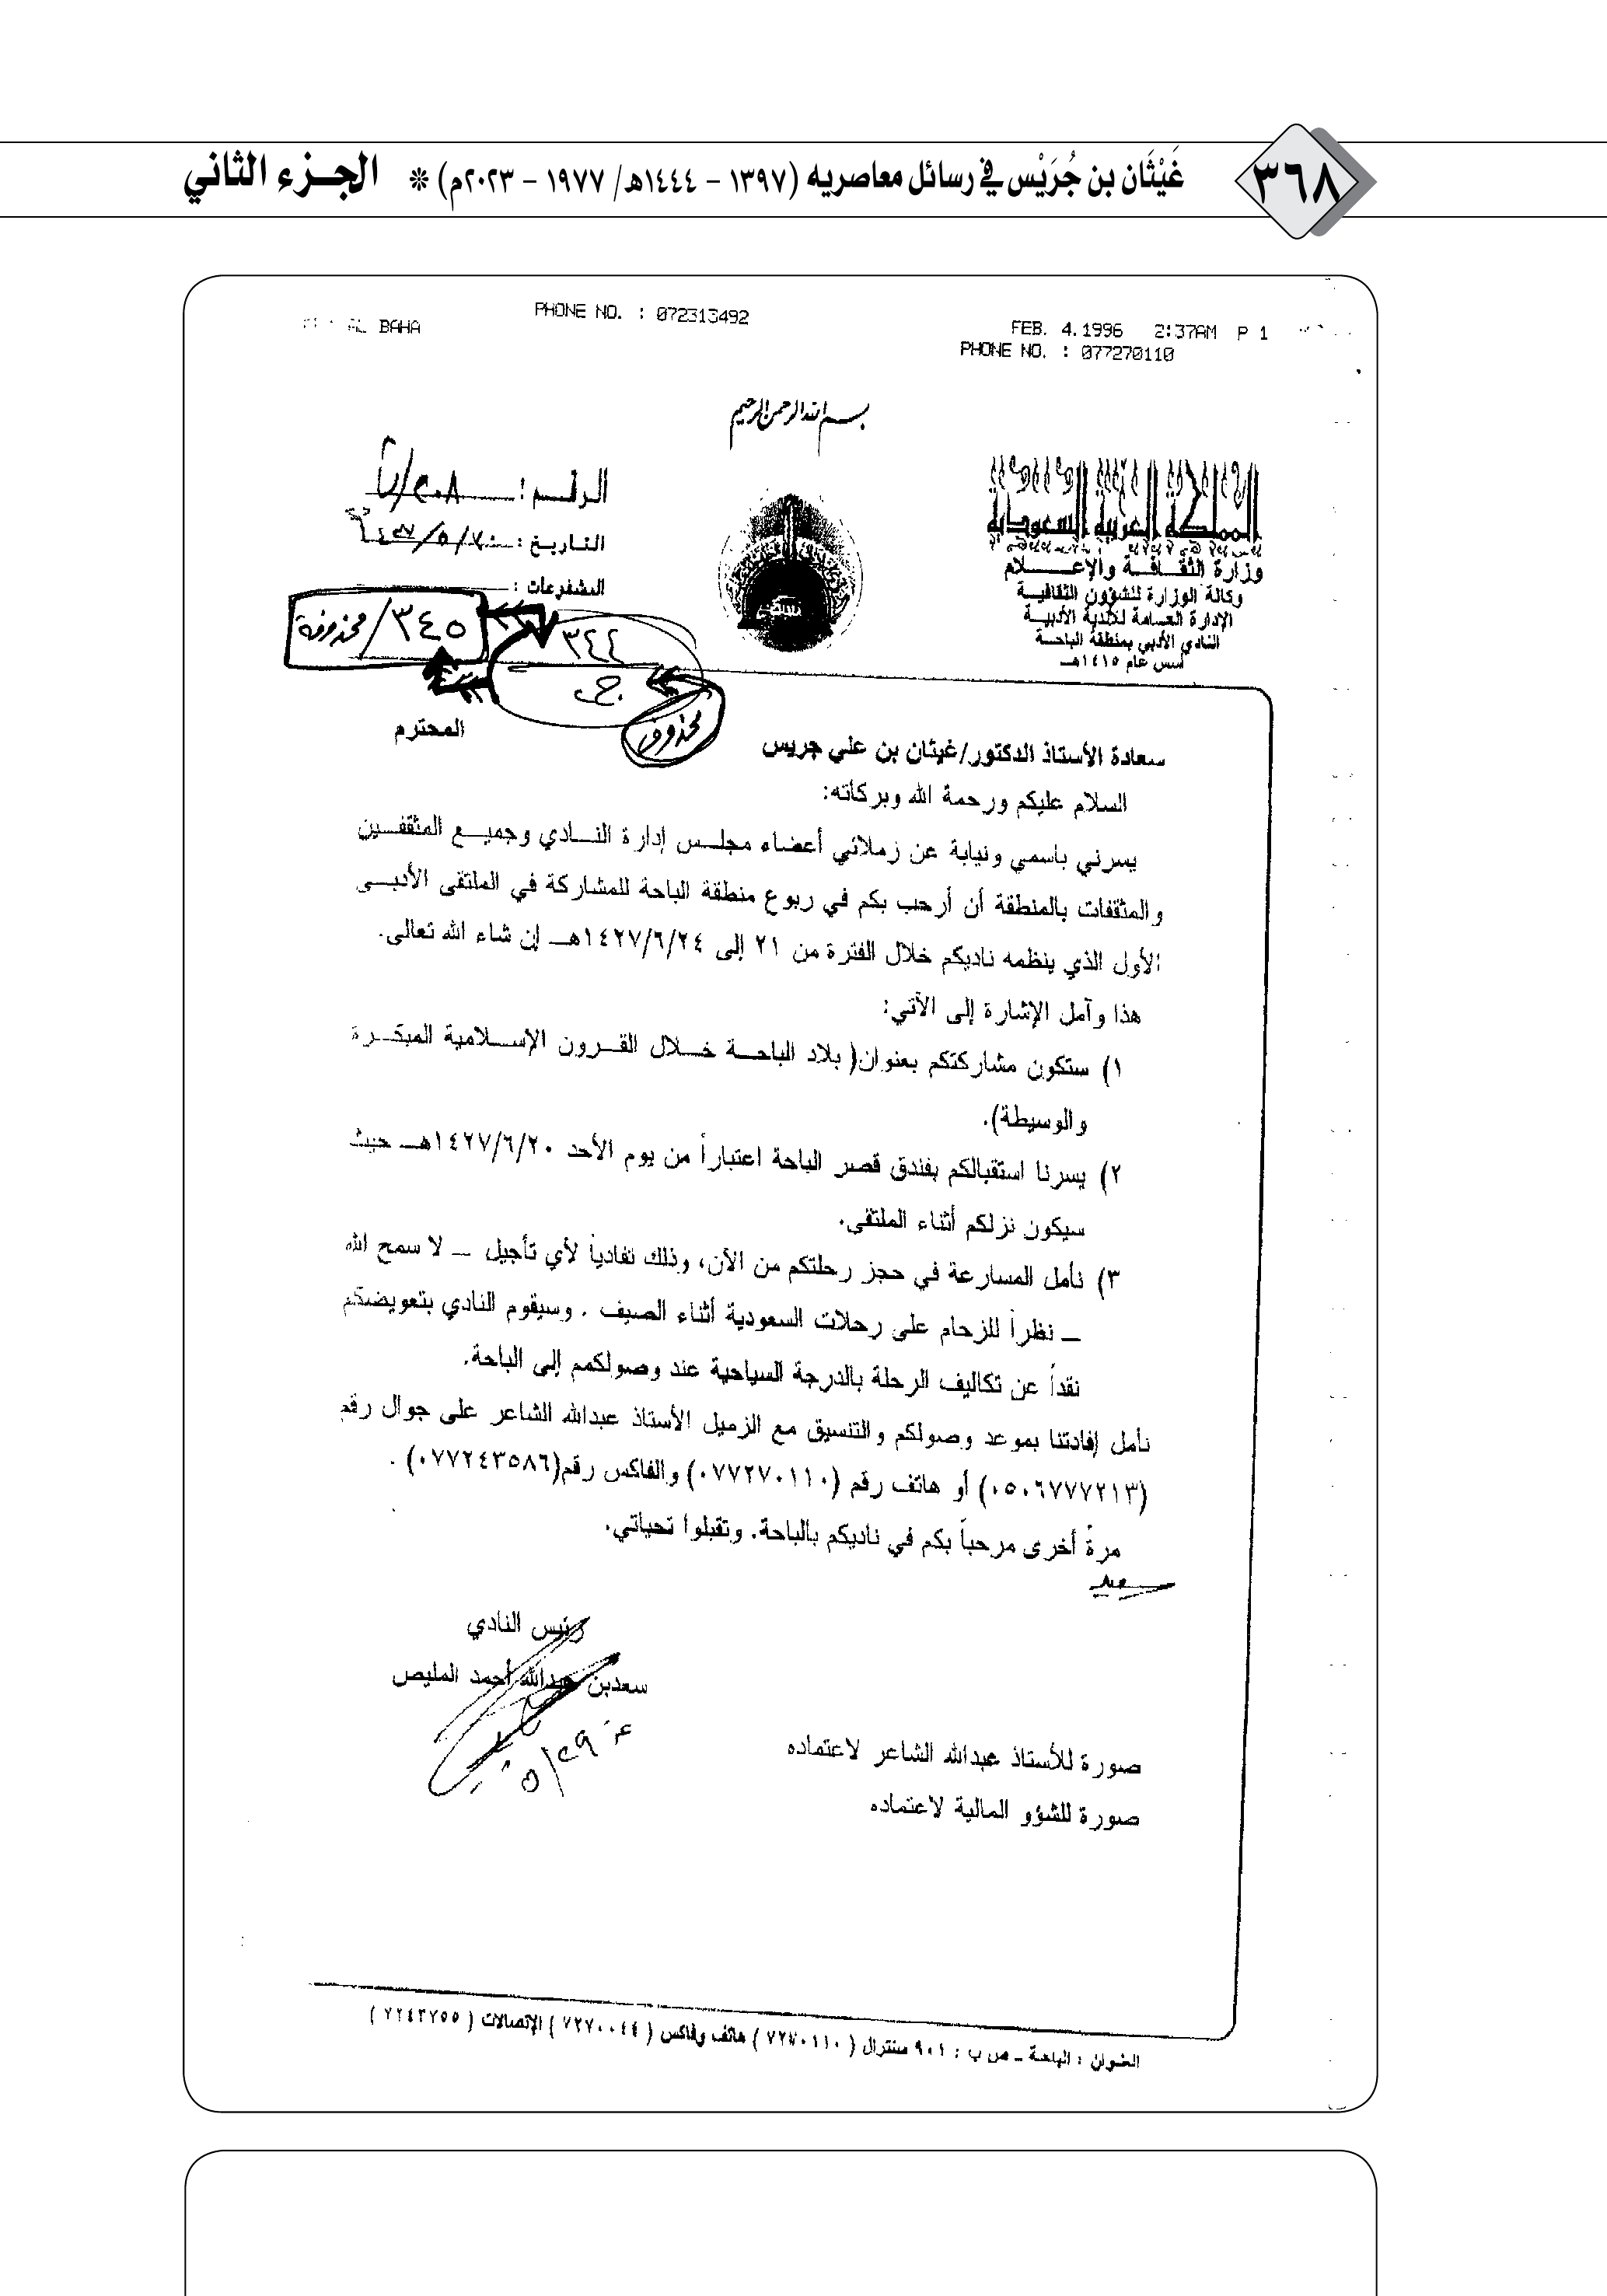 ٣٦٨
غَيْثَان بن جُرَيْس في رسائل معاصريه (١٣٩٧ – ١٤٤٤هـ/ ١٩٧٧ – ٢٠٢٣م) * الجزء الثاني
PHONE NO. : 072313492
AL BAHA
FEB. 4.1996 2:37AM P 1
PHONE NO. : 077270110
بسم الله الرحمن الرحيم
المملكة العربية السعودية
وزارة الثقافة والإعلام
وكالة الوزارة للشؤون الثقافية
الإدارة العامة للأندية الأدبية
النادي الأدبي بمنطقة الباحة
أسس عام ١٤١٥هـ
الرقم :
التاريخ :
المشفوعات :
٣٤٥/ محذوفة
٣٤٤
محذوف
سعادة الأستاذ الدكتور/غيثان بن علي جريس المحترم
السلام عليكم ورحمة الله وبركاته:
يسرني باسمي ونيابة عن زملائي أعضاء مجلس إدارة النادي وجميع المثقفين
والمثقفات بالمنطقة أن أرحب بكم في ربوع منطقة الباحة للمشاركة في الملتقى الأدبي
الأول الذي ينظمه ناديكم خلال الفترة من ٢١ إلى ١٤٢٧/٦/٢٤هـ إن شاء الله تعالى.
هذا وآمل الإشارة إلى الآتي:
١) ستكون مشاركتكم بعنوان( بلاد الباحة خلال القرون الإسلامية المبكرة
والوسيطة).
٢) يسرنا استقبالكم بفندق قصر الباحة اعتباراً من يوم الأحد ١٤٢٧/٦/٢٠هـ حيث
سيكون نزلكم أثناء الملتقى.
٣) نأمل المسارعة في حجز رحلتكم من الآن، وذلك تفادياً لأي تأجيل – لا سمح الله
– نظراً للزحام على رحلات السعودية أثناء الصيف . وسيقوم النادي بتعويضكم
نقداً عن تكاليف الرحلة بالدرجة السياحية عند وصولكمم إلى الباحة.
نأمل إفادتنا بموعد وصولكم والتنسيق مع الزميل الأستاذ عبدالله الشاعر على جوال رقم
(٠٥٠٦٧٧٧٢١٣) أو هاتف رقم (٠٧٧٢٧٠١١٠) والفاكس رقم(٠٧٧٢٤٣٥٨٦) .
مرةً أخرى مرحباً بكم في ناديكم بالباحة. وتقبلوا تحياتي.
رئيس النادي
سعدبن عبدالله أحمد المليص
صورة للأستاذ عبدالله الشاعر لاعتماده
صورة للشؤو المالية لاعتماده
العنوان : الباحة – ص ب : ٩٠١ سنترال ( ٧٢٧٠١١٠ ) هاتف وفاكس ( ٧٢٧٠٠٤٤ ) الإتصالات ( ٧٢٤٣٧٥٥ )